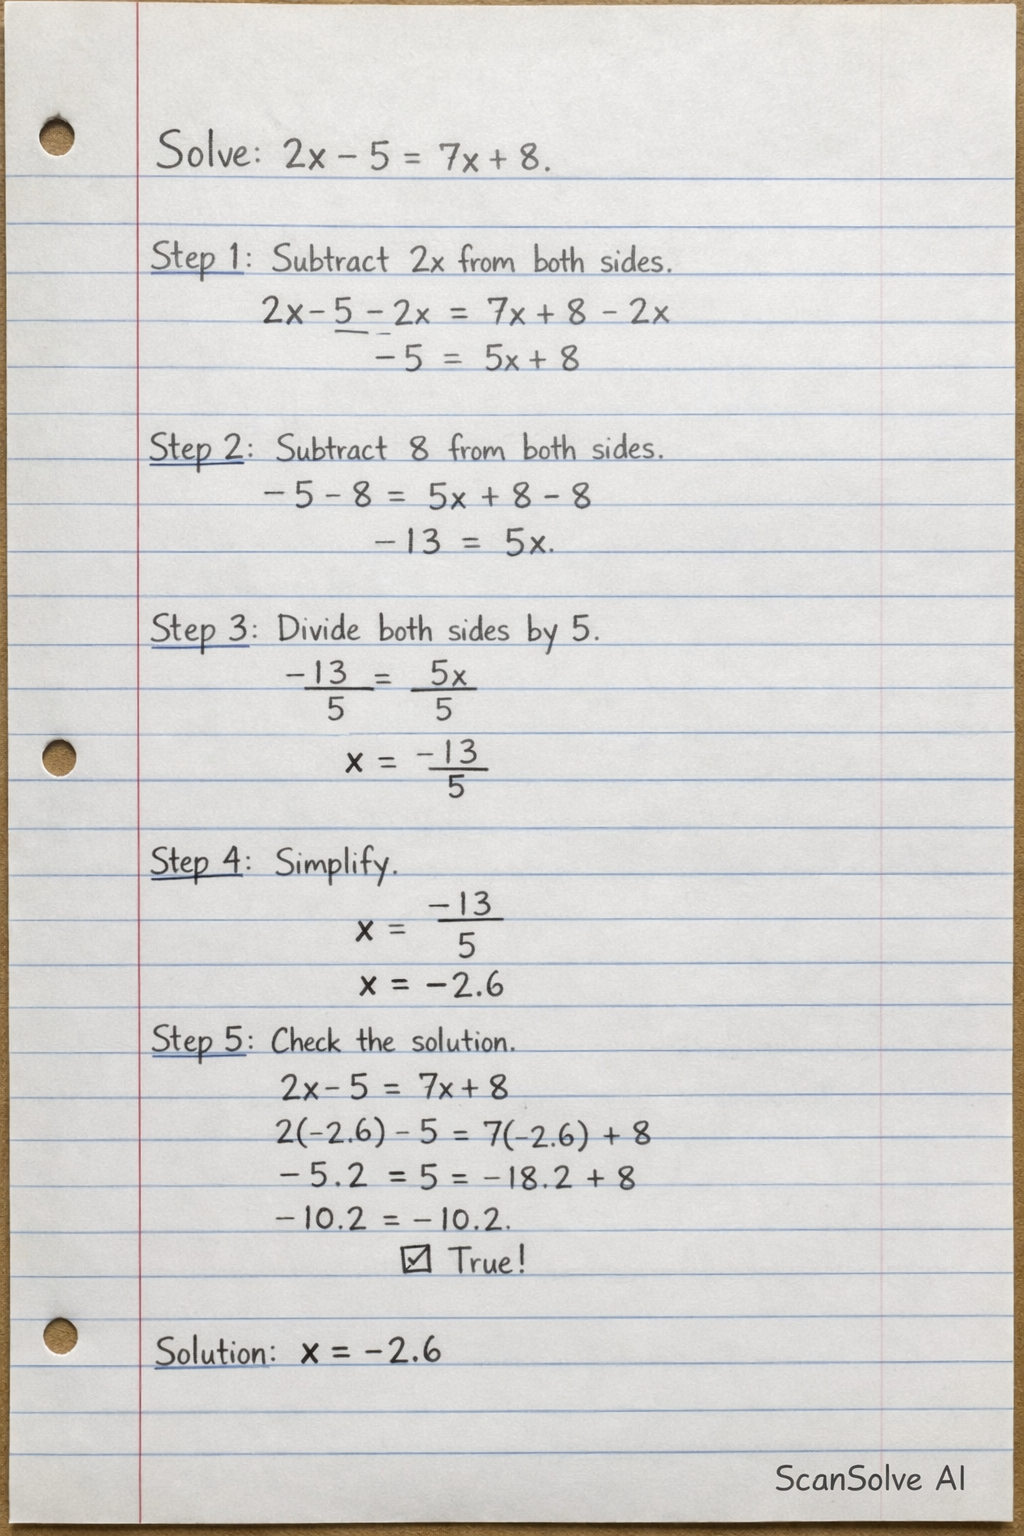 Solve: 2x - 5 = 7x + 8.
Step 1: Subtract 2x from both sides.
2x - 5 - 2x = 7x + 8 - 2x
-5 = 5x + 8
Step 2: Subtract 8 from both sides.
-5 - 8 = 5x + 8 - 8
-13 = 5x.
Step 3: Divide both sides by 5.
-13/5 = 5x/5
x = -13/5
Step 4: Simplify.
x = -13/5
x = -2.6
Step 5: Check the solution.
2x - 5 = 7x + 8
2(-2.6) - 5 = 7(-2.6) + 8
-5.2 = 5 = -18.2 + 8
-10.2 = -10.2.
☑ True!
Solution: x = -2.6
ScanSolve AI